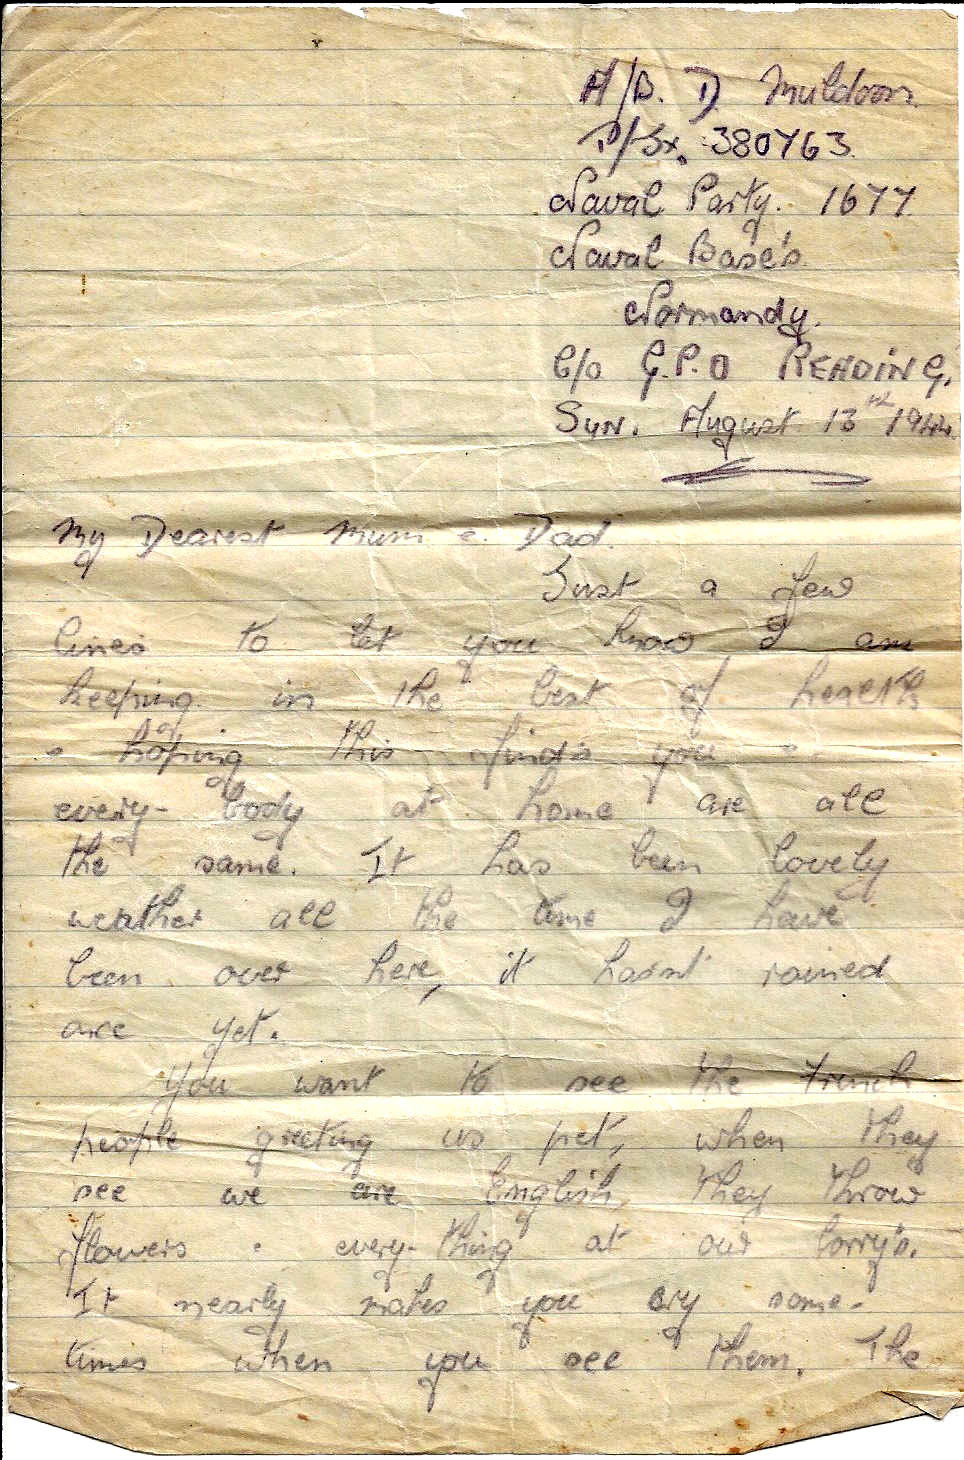 A/B. D. Muldoon.
D/Jx. 380763.
Naval Party. 1677
Naval Base's
Normandy.
C/o G.P.O READING,
SUN. August 13th 1944.
My Dearest Mum & Dad.
Just a few
lines to let you know I am
keeping in the best of health
& hoping this finds you &
every-body at home are all
the same. It has been lovely
weather all the time I have
been over here, it hasnt rained
once yet.
You want to see the French
people greeting us pet, when they
see we are English, they throw
flowers & every-thing at our lorry's.
It nearly makes you cry some-
times when you see them. The